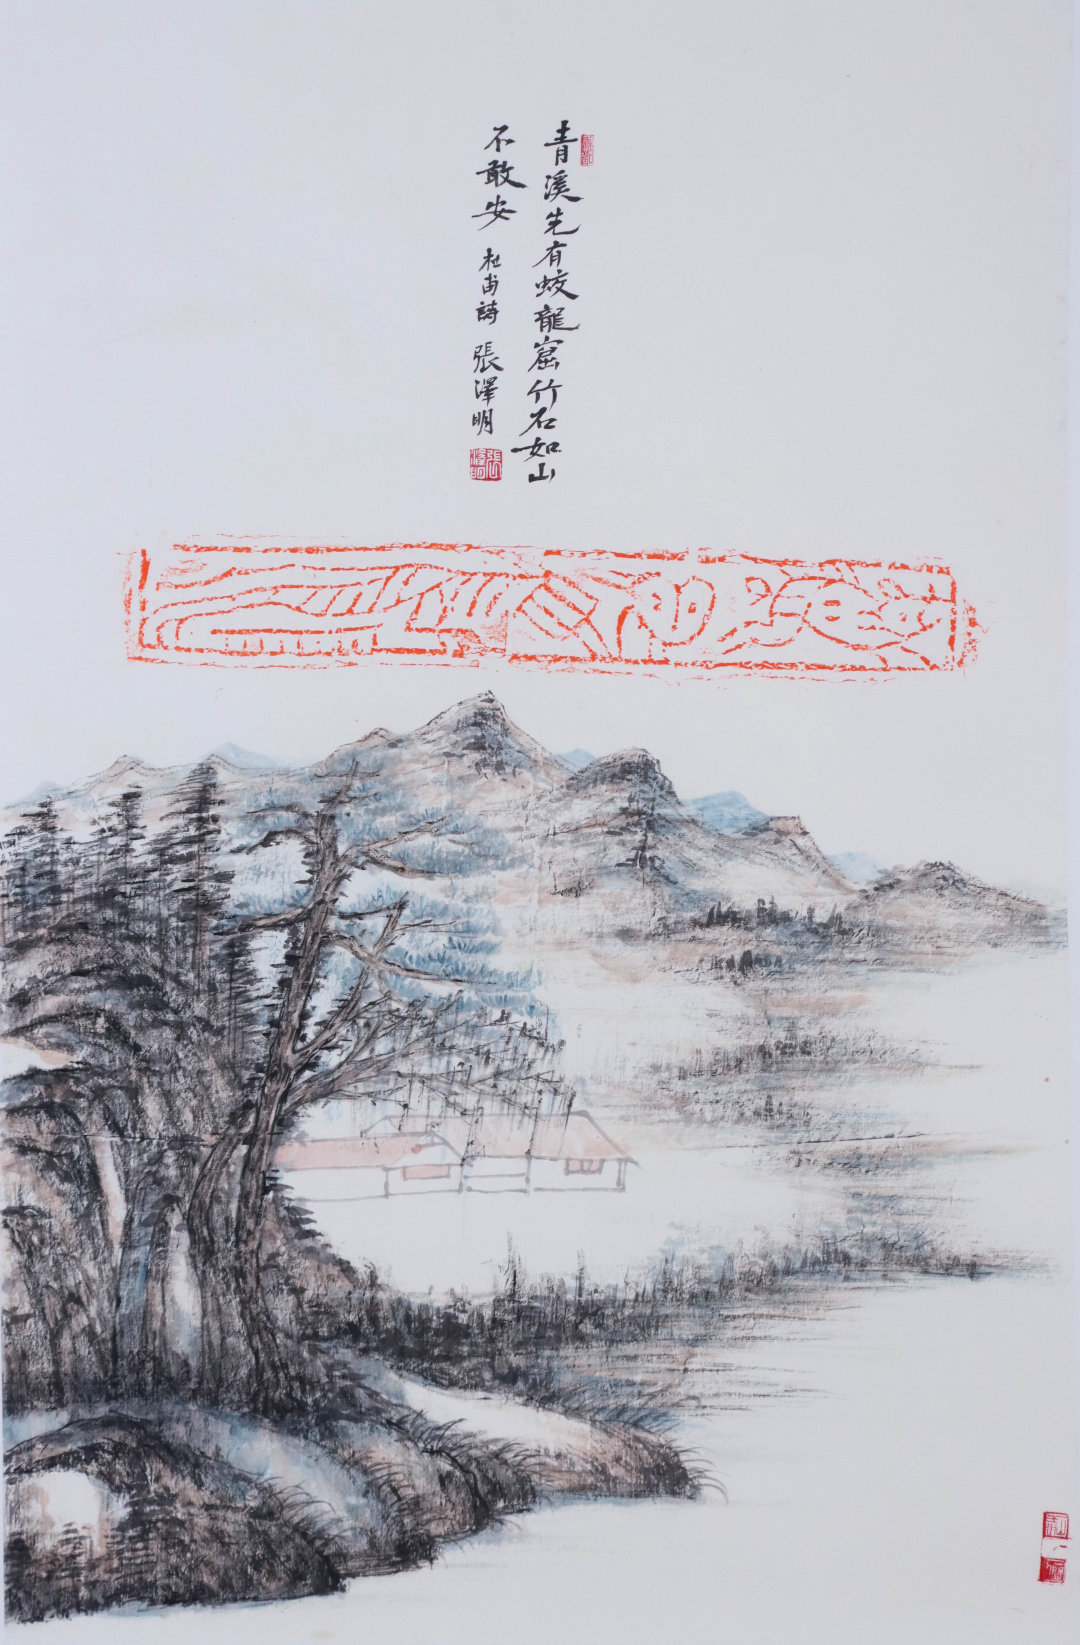 青溪先有蛟龍窟竹石如山
不敢安 杜甫詩 張澤明
張澤明